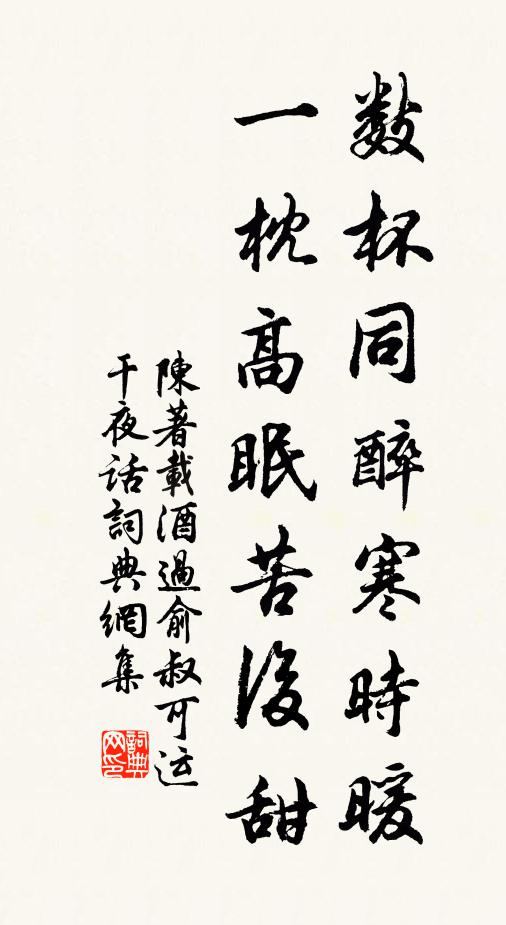 數杯同醉寒時暖
一枕高眠苦後甜
陳著載酒過俞叔可运
干夜话詞典網集
詞典网印